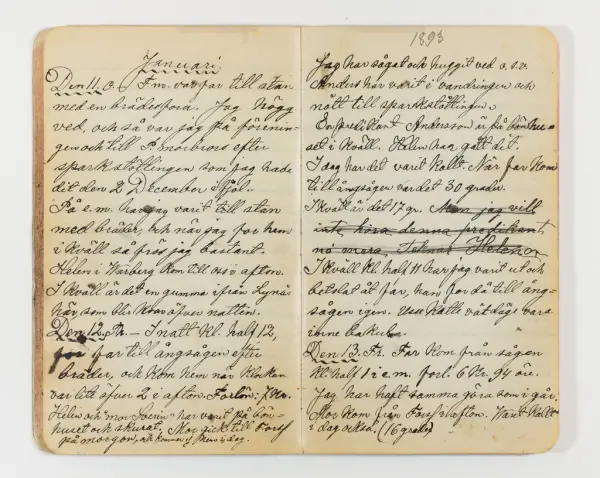 Januari.
Den 11. O. Fm. var far till stan
med en brädesfora. Jag högg
ved, och så var jag på förenin-
gen och till
sparkstöttingen som jag hade
dit den 2 December i fjol.
På e.m. har jag varit till stan
med bräder, och när jag for hem
i kväll så frös jag bastant.
Helen i Warberg kom till oss i afton.
I kväll är det en gumma ifrån Lynäs
här, som blir kvar öfver natten.
Den 12. Th. — I natt kl. half 12,
for far till ångsågen efter
bräder, och kom hem när klockan
var lite öfver 2 e afton. Förlön: 7 kr.
Helen och mor har varit på bön-
huset och skurat. Mor gick till Forss
på morgon, och kommer ej hem i dag.
1893
Jag har sågat och huggit ved o.s.v.
Anders har varit i vandringen och
nått till sparkstöttingen.
En predikant Anderson är på bönhu-
set i kväll. Helen har gått dit.
I dag har det varit kallt. När far kom
till ångsågen var det 30 grader.
I kväll är det 17 gr. Men jag vill
inte höra denna predikant
mera, Helena
I kväll kl. half 11 har jag varit ut och
betslat åt far, han for då till ång-
sågen igen. Uss kalle
inne
Den 13. Fr. Far kom från sågen
kl. half 1 i e.m. förl. 6 kr. 94 öre.
Jag har haft samma göra som i går.
Mor kom från Forss i afton. Varit kallt
i dag också. (16 grader)